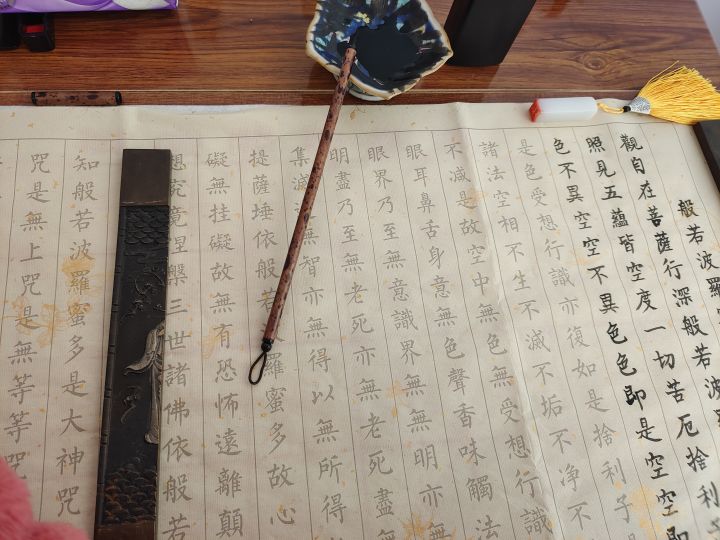 般若波羅
觀自在菩薩行深般若波
照見五蘊皆空度一切苦厄捨利
色不異空空不異色色即是空空即
是色受想行識亦復如是捨利子
諸法空相不生不滅不垢不净不
不減是故空中無色無受想行識
眼耳鼻舌身意無色聲香味觸法
眼界乃至無意識界無無明亦
明盡乃至無老死亦無老死盡
集滅無智亦無得以無所得
提薩埵依般若羅蜜多故心
礙無挂礙故無有恐怖遠離顛
想究竟涅槃三世諸佛依般若
知般若波羅蜜多是大神咒
咒是無上咒是無等等咒